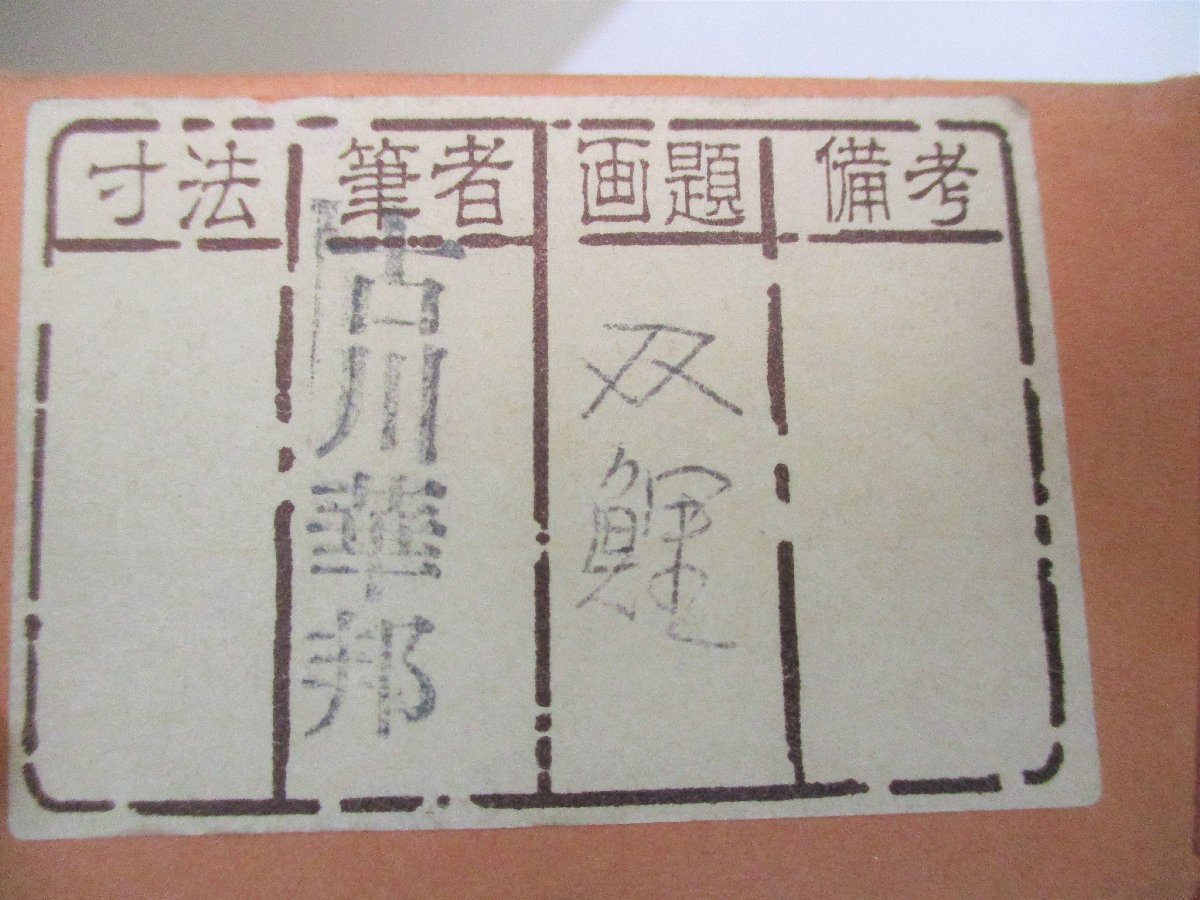 寸法
筆者
画題
備考
古川華邦
双鯉